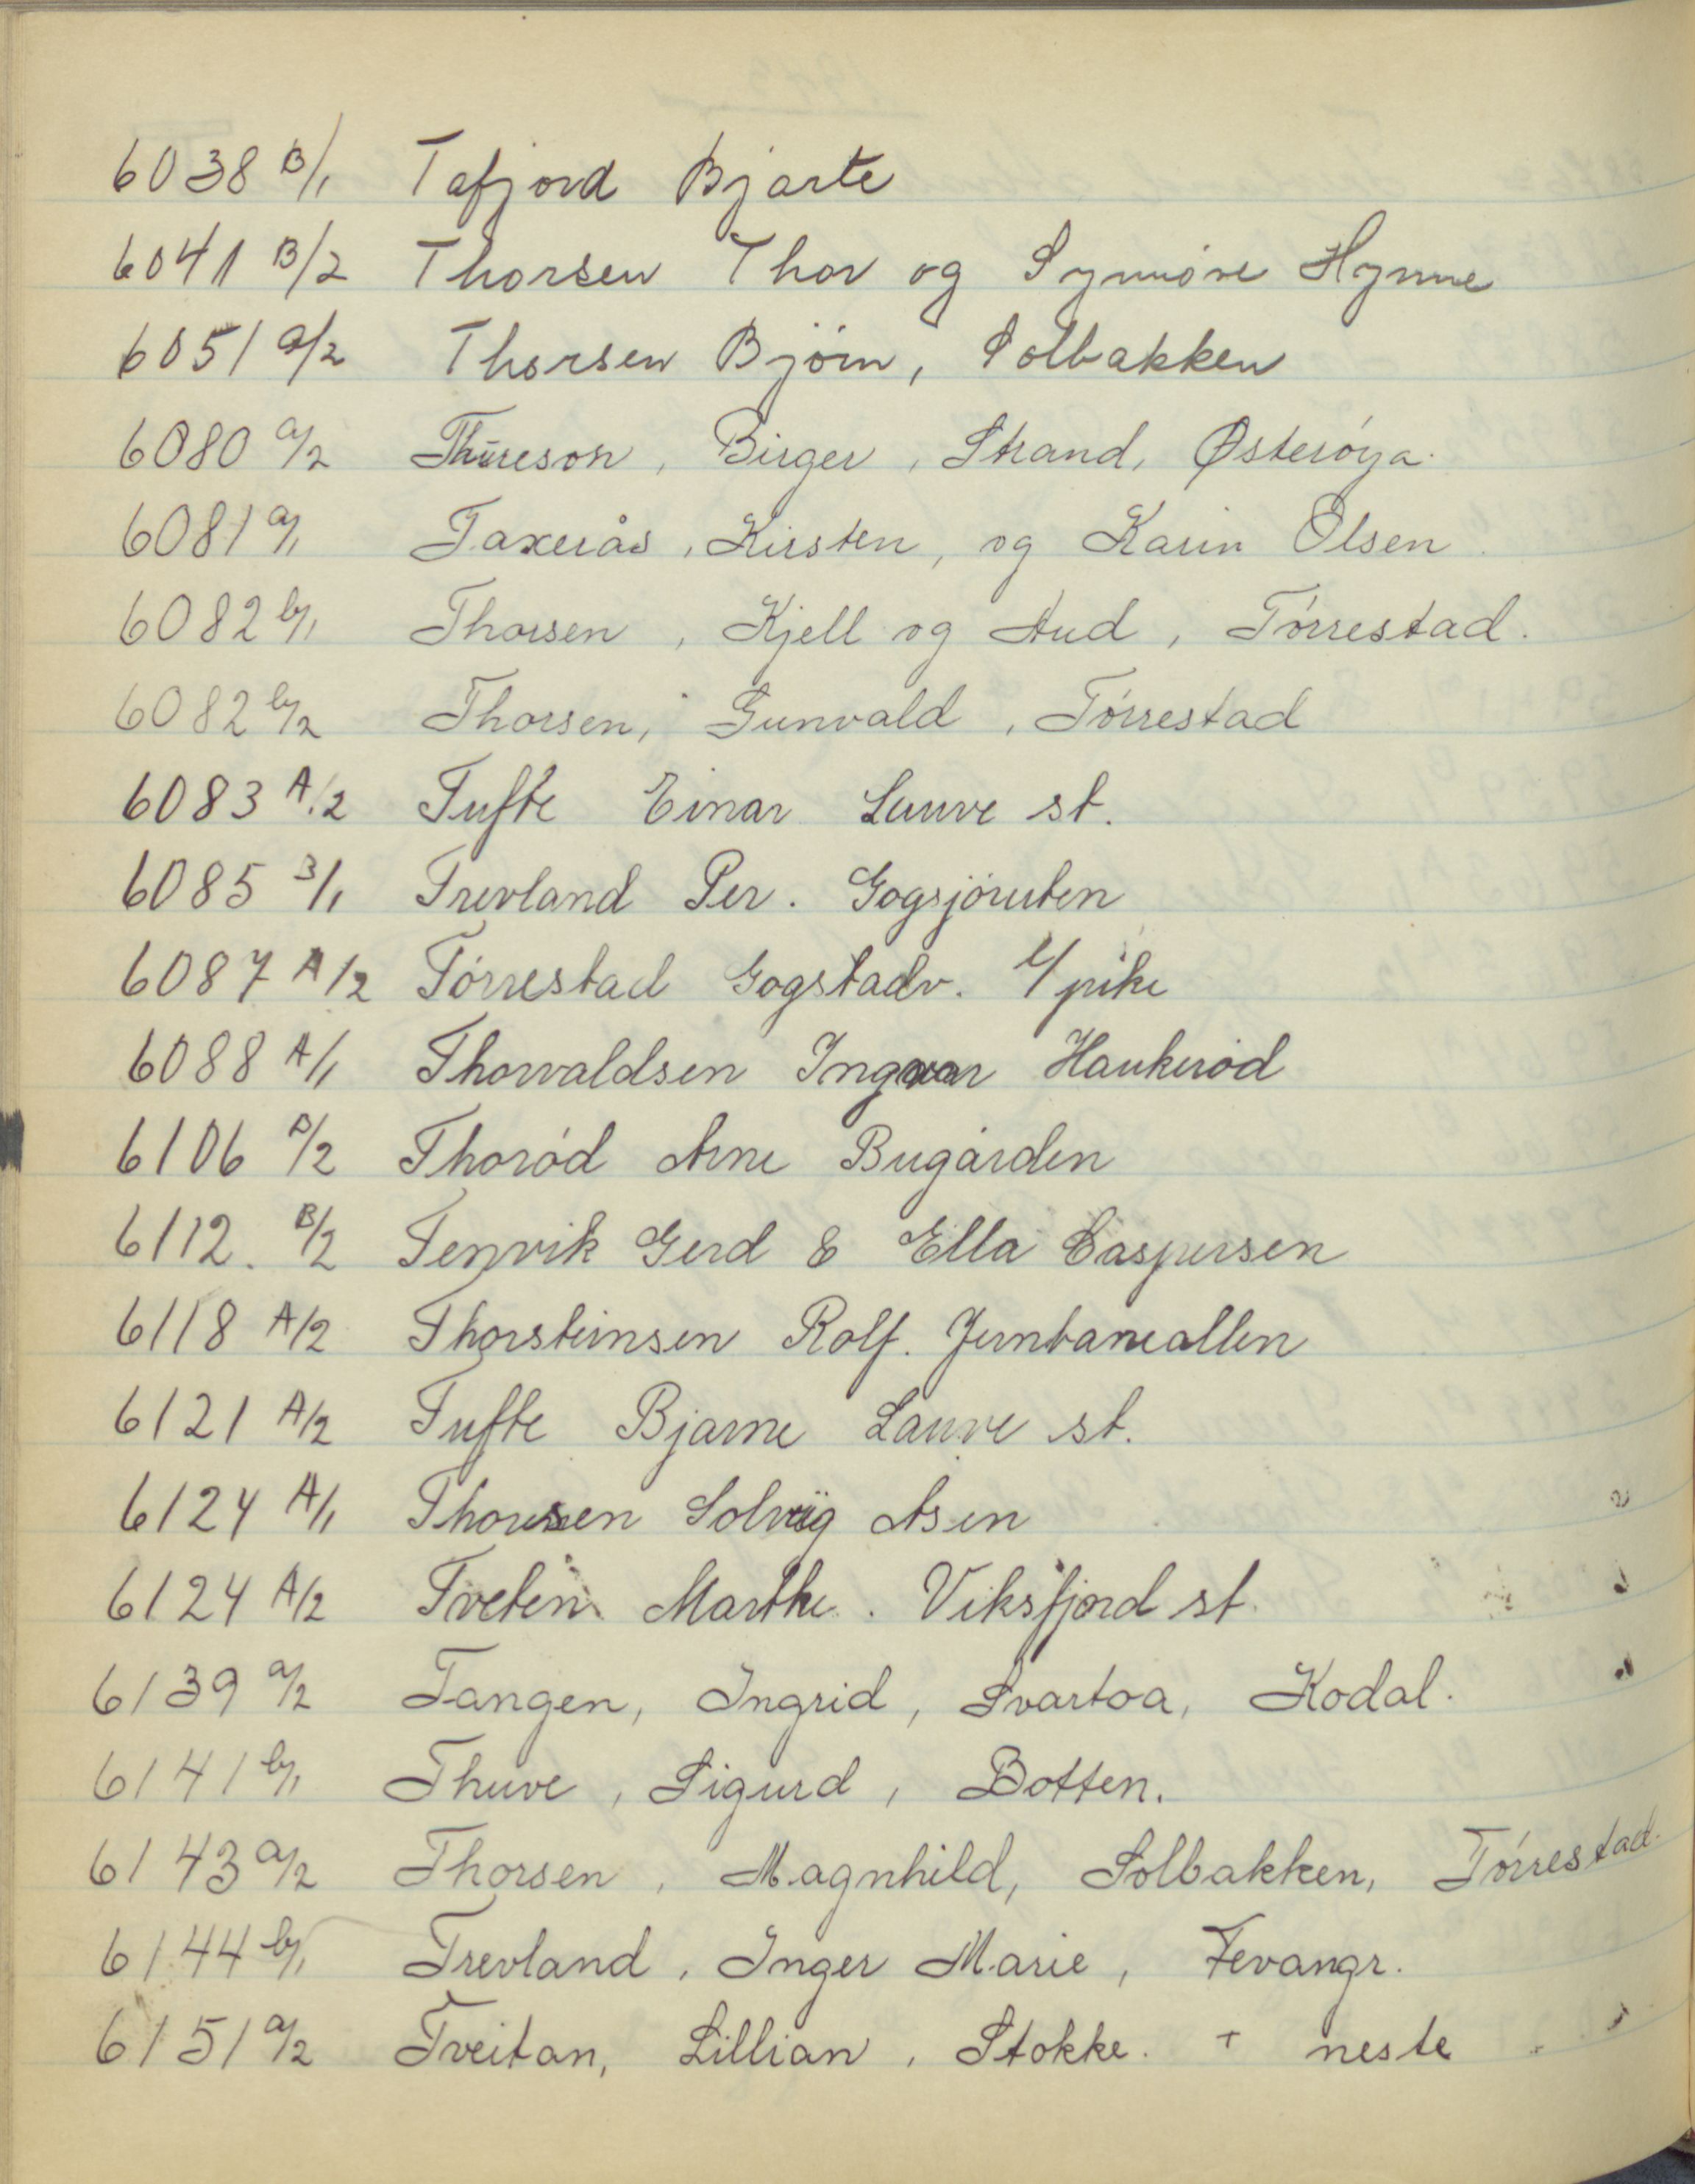 6038 B/1 Tafjord Bjarte
6041 B/2 Thorsen Thor og Synnöve Hynne
6051 a/2 Thorsen Björn, Solbakken
6080 a/2 Thureson, Birger, Strand, Østeröya.
6081 a/1 Taxerås, Kirsten, og Karin Olsen.
6082 b/1 Thorsen, Kjell og Aud, Törrestad.
6082 b/2 Thorsen, Gunvald, Törrestad
6083 A/2 Tufte Einar Lauve st.
6085 B/1 Trevland Per. Gogsjöruten
6087 A/2 Törrestad Gogstadv. pike
6088 A/1 Thorvaldsen Ingvar Haukeröd
6106 B/2 Thoröd Arne Bugården
6112. B/2 Tenvik Gerd & Ella Caspersen
6118 A/2 Thorsteinsen Rolf. Jernbanealleen
6121 A/2 Tufte Bjarne Lauve st.
6124 A/1 Thorsen Solveig Åsen
6124 A/2 Tveten Marthe. Viksfjord st.
6139 a/2 Tangen, Ingrid, Svartoa, Kodal.
6141 b/1 Thuve, Sigurd, Botten.
6143 a/2 Thorsen, Magnhild, Solbakken, Törrestad.
6144 b/1 Trevland, Inger Marie, Fevangr.
6151 a/2 Tveitan, Lillian, Stokke. + neste